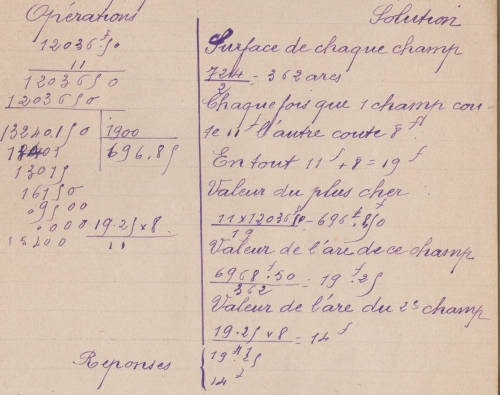 Opérations
12036f50
11
1203650
1203650
13240150 1900
18401 696.85
13015
16150
09500
.000 19.25x8
15200 11
Solution
Surface de chaque champ
724 = 362 ares
2
Chaque fois que 1 champ cou-
te 11f l'autre coute 8f
En tout 11f + 8 = 19f
Valeur du plus cher
11 x 12036f50 = 696f.850
19
Valeur de l'are de ce champ
6968f.50 = 19f.25
362
Valeur de l'are du 2e champ
19.25 x 8 = 14f
Reponses
19f.25
14f